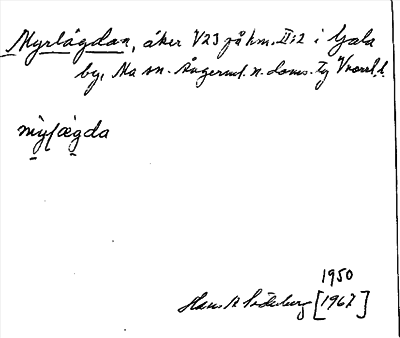 Myrlägdan, åker V23 på hm. II:2 i Gala
by, Ma sn. Ångerml. n. doms. Tg
mỳlægda
1950
Hans R Söderberg [1967]